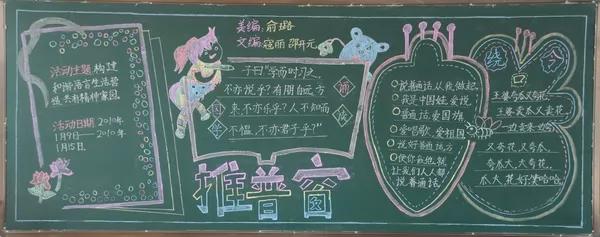 活动主题:构建
和谐语言生活营
共有精神家园。
活动日期:2010年
1月9日——2010年
1月15日。
美编:俞璐
文编:寇丽 邵开元
子曰:“学而时习之,
不亦悦乎?有朋自远方
来,不亦乐乎?人不知而
不愠,不亦君子乎?”
国
学
诵
读
推普窗
说普通话,从我做起。
我是中国娃,爱说
普通话,爱国旗,
爱唱歌,爱祖国。
说好普通话,方
便你我他,就
让我们人人都
说普通话。
绕口令
王婆夸瓜又夸花,
王婆卖瓜又卖花,
一边卖来一边夸,
又夸花,又夸瓜,
夸瓜大,大夸花,
瓜大,花好,笑哈哈。